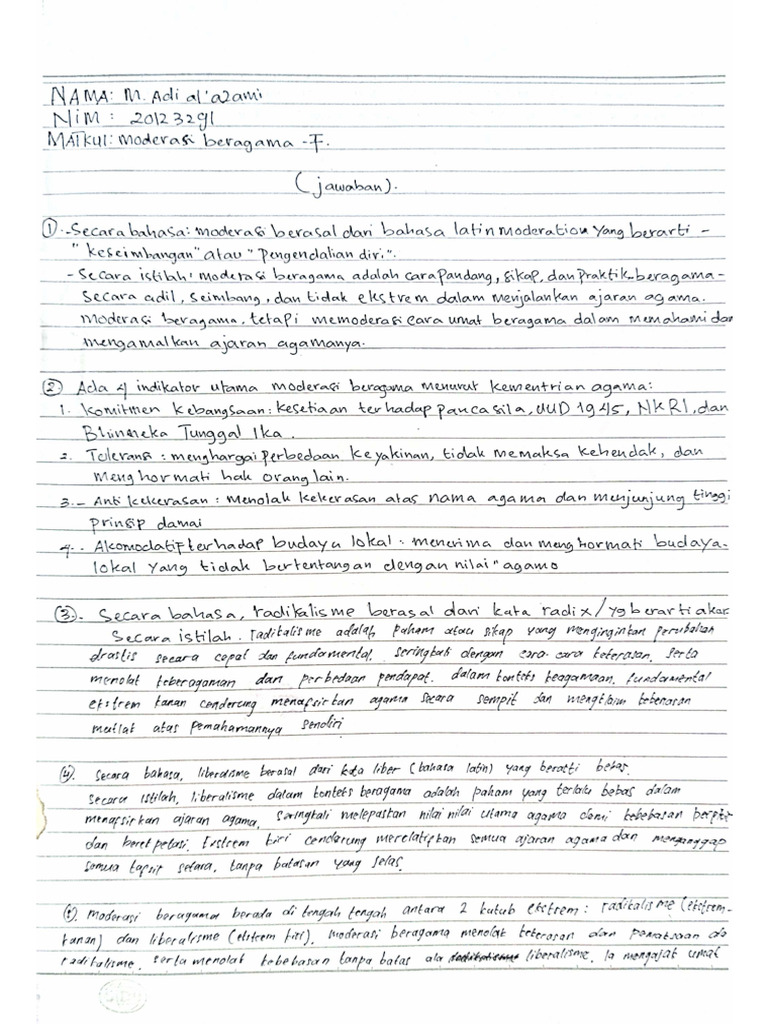 NAMA: M. Adi al'azami
NiM : 20123291
MATKUl: moderasi beragama - F.
(jawaban).
① .- Secara bahasa: moderasi berasal dari bahasa latin moderation yang berarti -
"keseimbangan" atau "pengendalian diri".
- Secara istilah: moderasi beragama adalah cara pandang, sikap, dan praktik beragama -
secara adil, seimbang, dan tidak ekstrem dalam menjalankan ajaran agama.
moderasi beragama, tetapi memoderasi cara umat beragama dalam memahami dan
mengamalkan ajaran agamanya.
② Ada 4 indikator utama moderasi beragama menurut kementrian agama:
1. Komitmen kebangsaan: kesetiaan terhadap pancasila, UUD 1945, NKRI, dan
Bhinneka Tunggal Ika.
2. Toleransi : menghargai perbedaan keyakinan, tidak memaksa kehendak, dan
menghormati hak orang lain.
3.- Anti kekerasan : menolak kekerasan atas nama agama dan menjunjung tinggi
prinsip damai
4.. Akomodatif terhadap budaya lokal : menerima dan menghormati budaya-
lokal yang tidak bertentangan dengan nilai" agama
③. Secara bahasa, radikalisme berasal dari kata radix / yg berarti akar
Secara istilah. radikalisme adalah paham atau sikap yang menginginkan perubahan
drastis secara cepat dan fundamental. seringkali dengan cara-cara kekerasan. serta
menolak keberagaman dan perbedaan pendapat. dalam konteks beagamaan. fundamental
ekstrem kanan cenderung menafsirkan agama secara sempit dan mengklaim kebenaran
mutlak atas pemahamannya sendiri
④. Secara bahasa, liberalisme berasal dari kata liber (bahasa latin) yang berarti bebas.
Secara istilah, liberalisme dalam konteks beragama adalah paham yang terlalu bebas dalam
menafsirkan ajaran agama. Seringkali melepaskan nilai nilai utama agama demi kebebasan berpikir
dan berekpetasi. Ekstrem kiri cenderung merelatifkan semua ajaran agama dan menganggap
semua tafsir setara, tanpa batasan yang jelas.
moderasi beragama berada di tengah tengah antara 2 kutub ekstrem : radikalisme (ekstrem-
kanan) dan liberalisme (ekstrem kiri). moderasi beragama menolak kekerasan dan pemaksaan
radikalisme. serta menolak kebebasan tanpa batas ala liberalisme. Ia mengajak umat